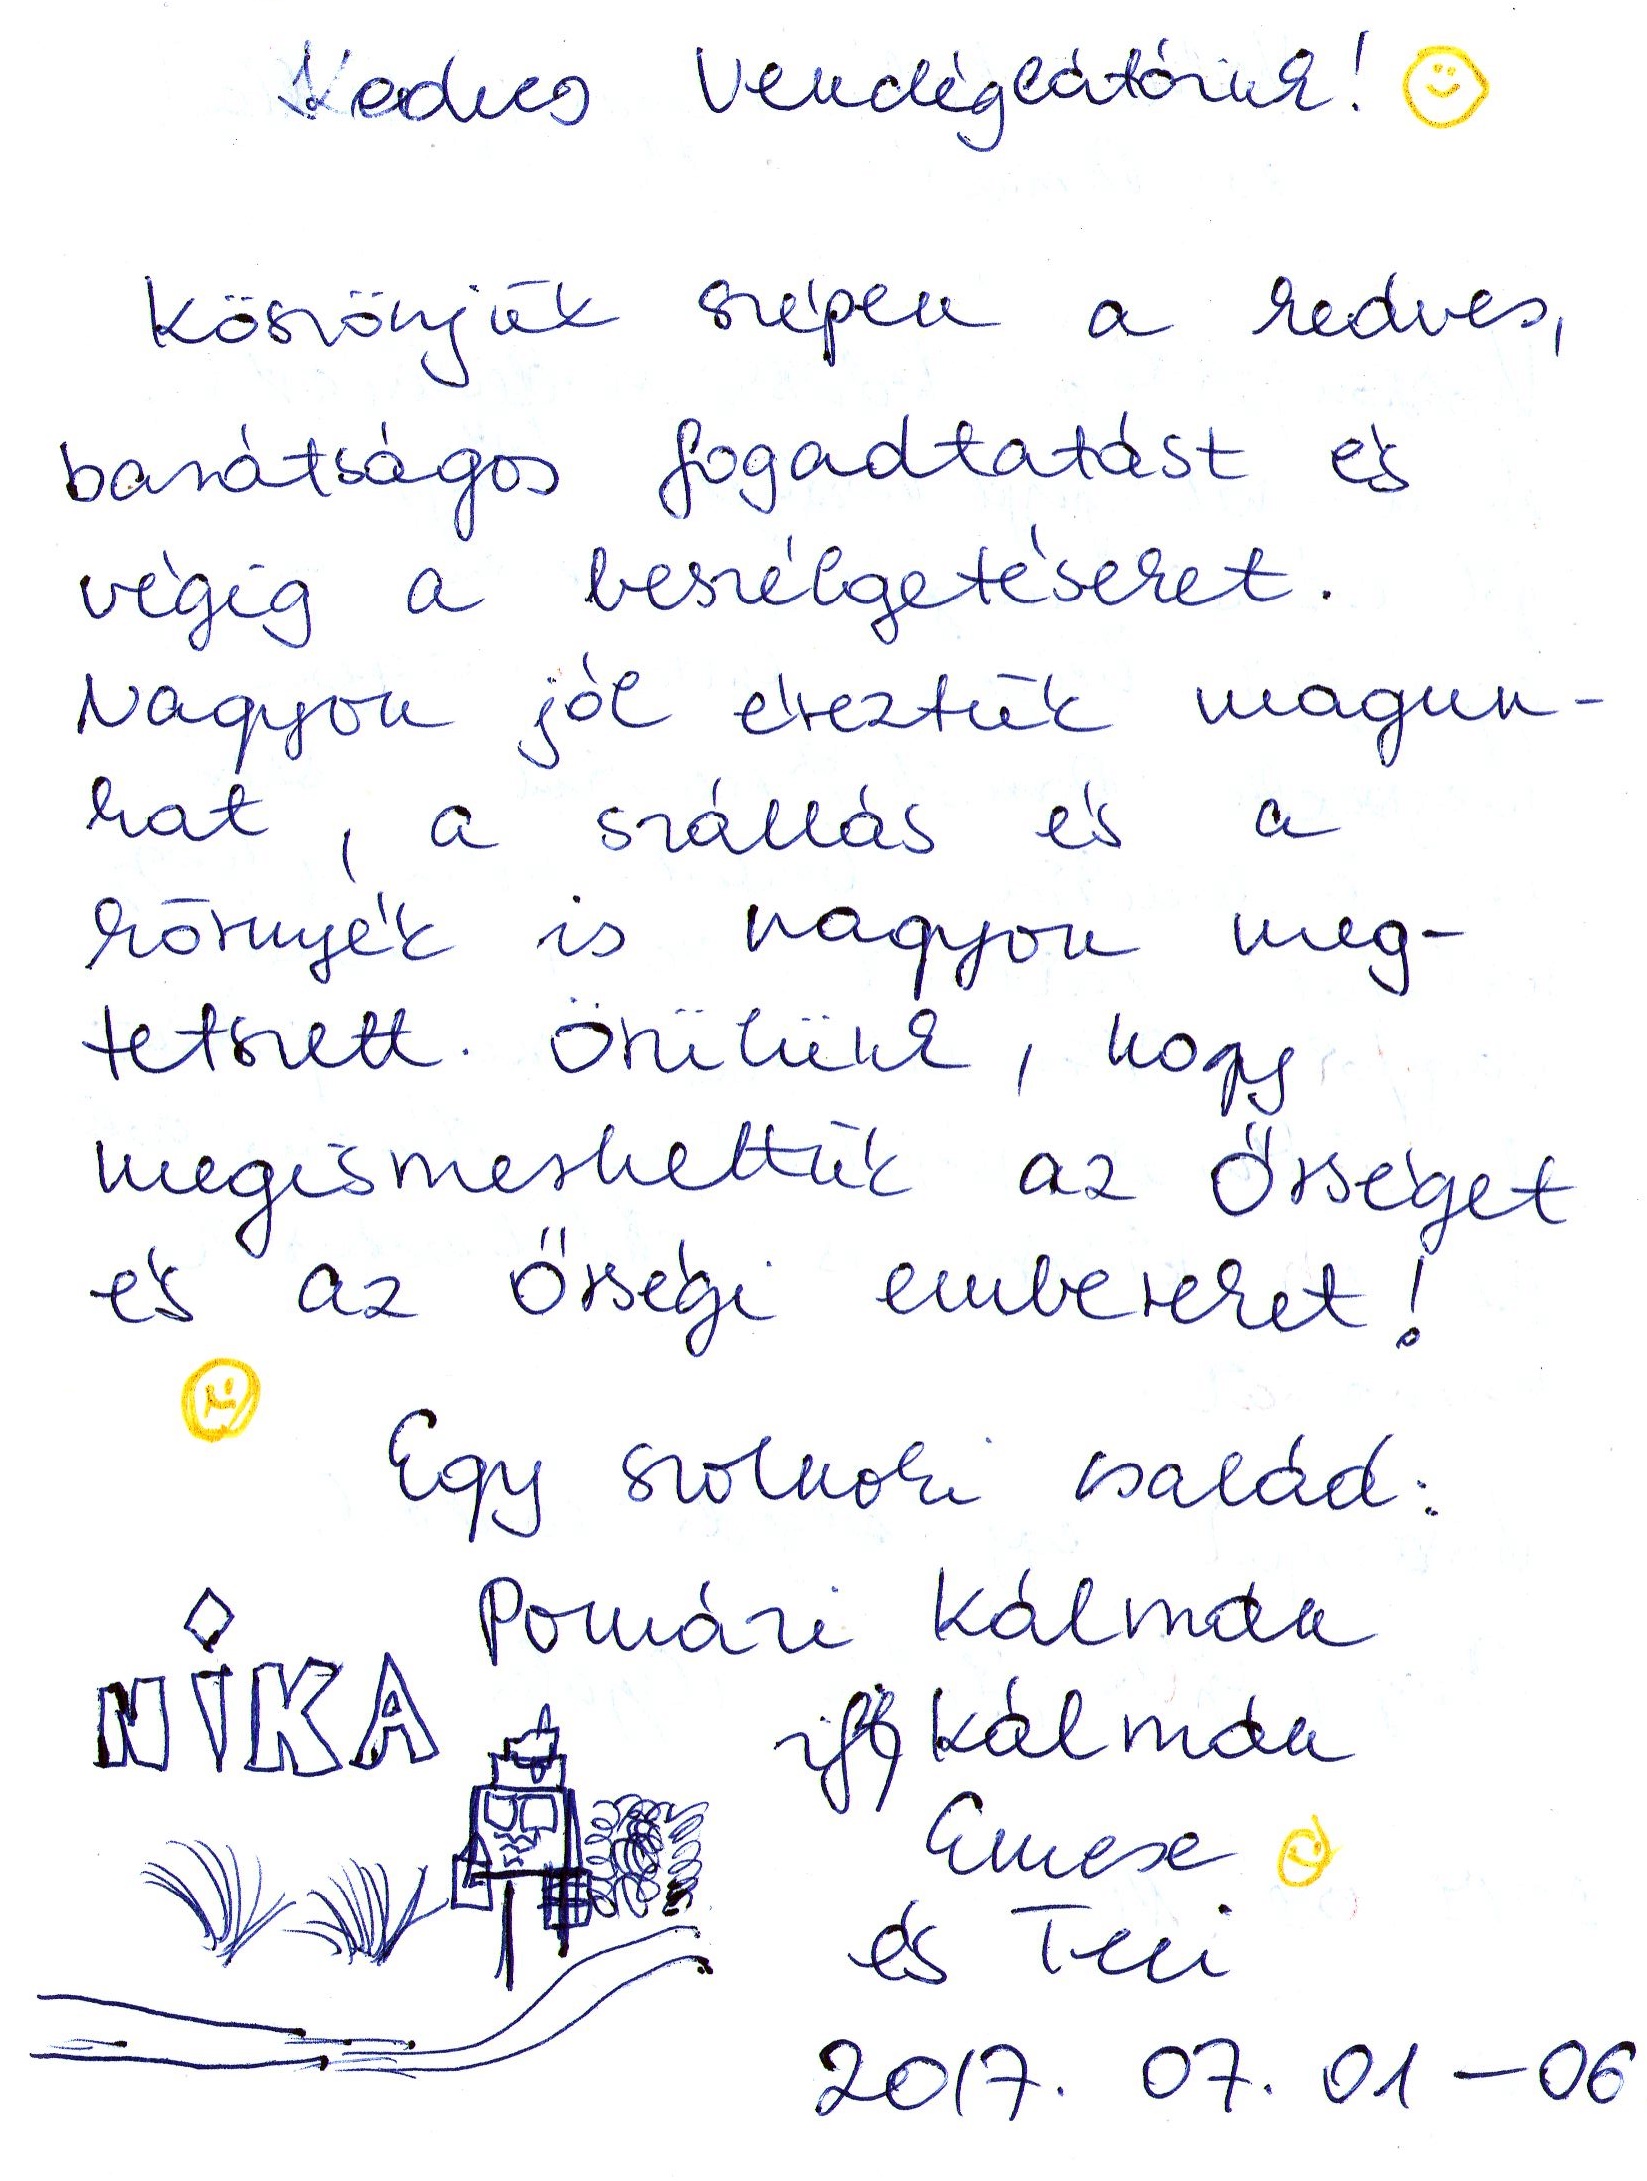 Kedves Vendéglátóink!
Köszönjük szépen a kedves,
barátságos fogadtatást és
végig a beszélgetéseket.
Nagyon jól éreztük magun-
kat, a szállás és a
környék is nagyon meg-
tetszett. Örülünk, hogy
megismerhettük az Őrséget
és az őrségi embereket!
Egy szolnoki család:
Pomázi Kálmán
ifj Kálmán
Emese
és Timi
NIKA
2017. 07. 01-06